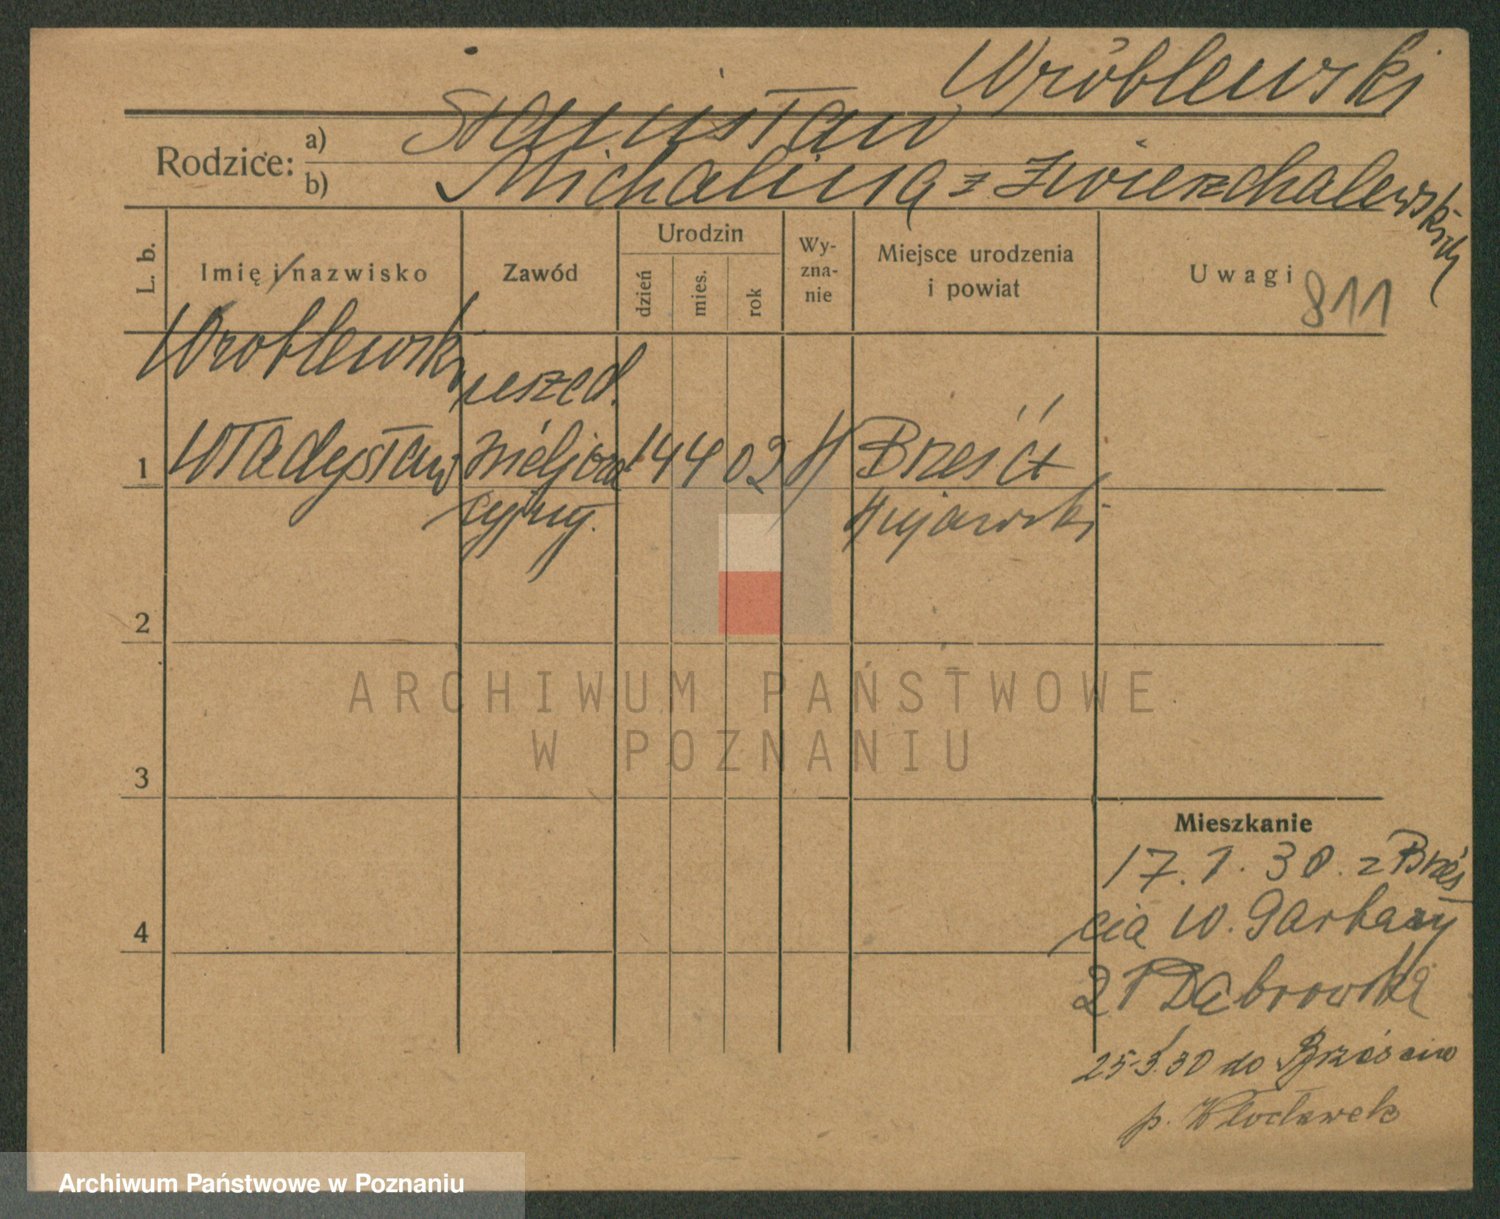 Wróblewski
Rodzice: a) Stanisław
b) Michalina z Zwierzchalewskich
L. b.
Imię i nazwisko
Zawód
Urodzin
dzień
mies.
rok
Wy-
zna-
nie
Miejsce urodzenia
i powiat
Uwagi 811
Wroblewski
urzęd.
1 Władysław
14 4 03
Brześć
cyjny.
Kujawski
2
ARCHIWUM PAŃSTWOWE
W POZNANIU
3
Mieszkanie
17. 1. 30. z Brześ
cia W. Garbary
4
21 Dąbrowska
25.3.30 do Brześcia
p. Włocławek
Archiwum Państwowe w Poznaniu